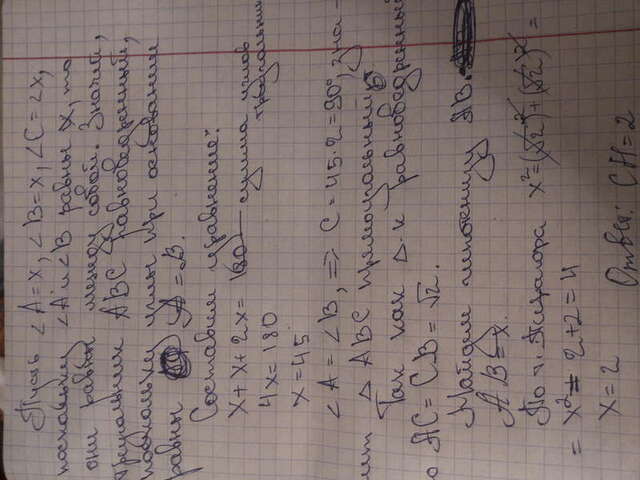 Пусть ∠A=x, ∠B=x, ∠C=2x,
поскольку ∠A и ∠B равны x, то
они равны между собой. Значит,
треугольник ABC равнобедренный,
поскольку углы при основании
равны ∠A=∠B.
Составим уравнение:
x+x+2x=180 - сумма углов треугольника
4x=180
x=45
∠A=∠B, => C=45·2=90°, зна-
чит △ABC прямоугольный
Так как △-к равнобедренный,
то AC=CB=√2.
Найдём гипотенузу AB.
AB=x.
По т. Пифагора x²=(√2)²+(√2)²=
=x²=2+2=4
x=2
Ответ: CH=2